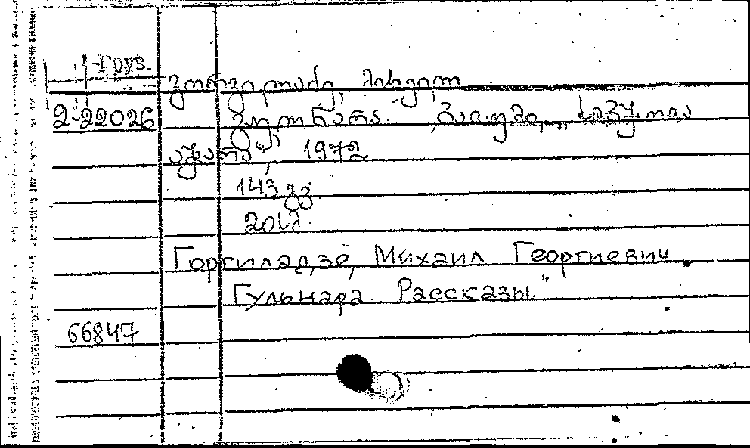 Груз.
გორგილაძე, მიხეილ
2-22026
გულნარა. ბათუმი, „საბჭოთა
აჭარა", 1972
143 გვ.
20კ.
Горгиладзе, Михаил Георгиевич
Гульнара. Рассказы"
66847